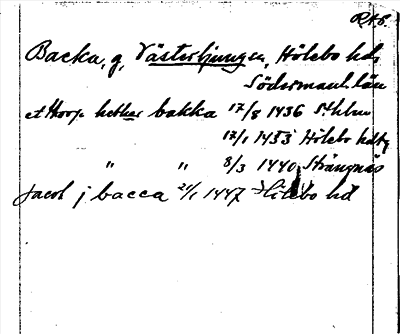 RAP.
Backa, g, Västerljungen, Hölebo hd,
Södermanl. län
et thorp hether bakka 17/8 1436 Sthlm
17/1 1453 Hölebo hdtg
" " 8/3 1440 Strängnäs
Jacob j bacca 21/1 1447 Hölebo hd